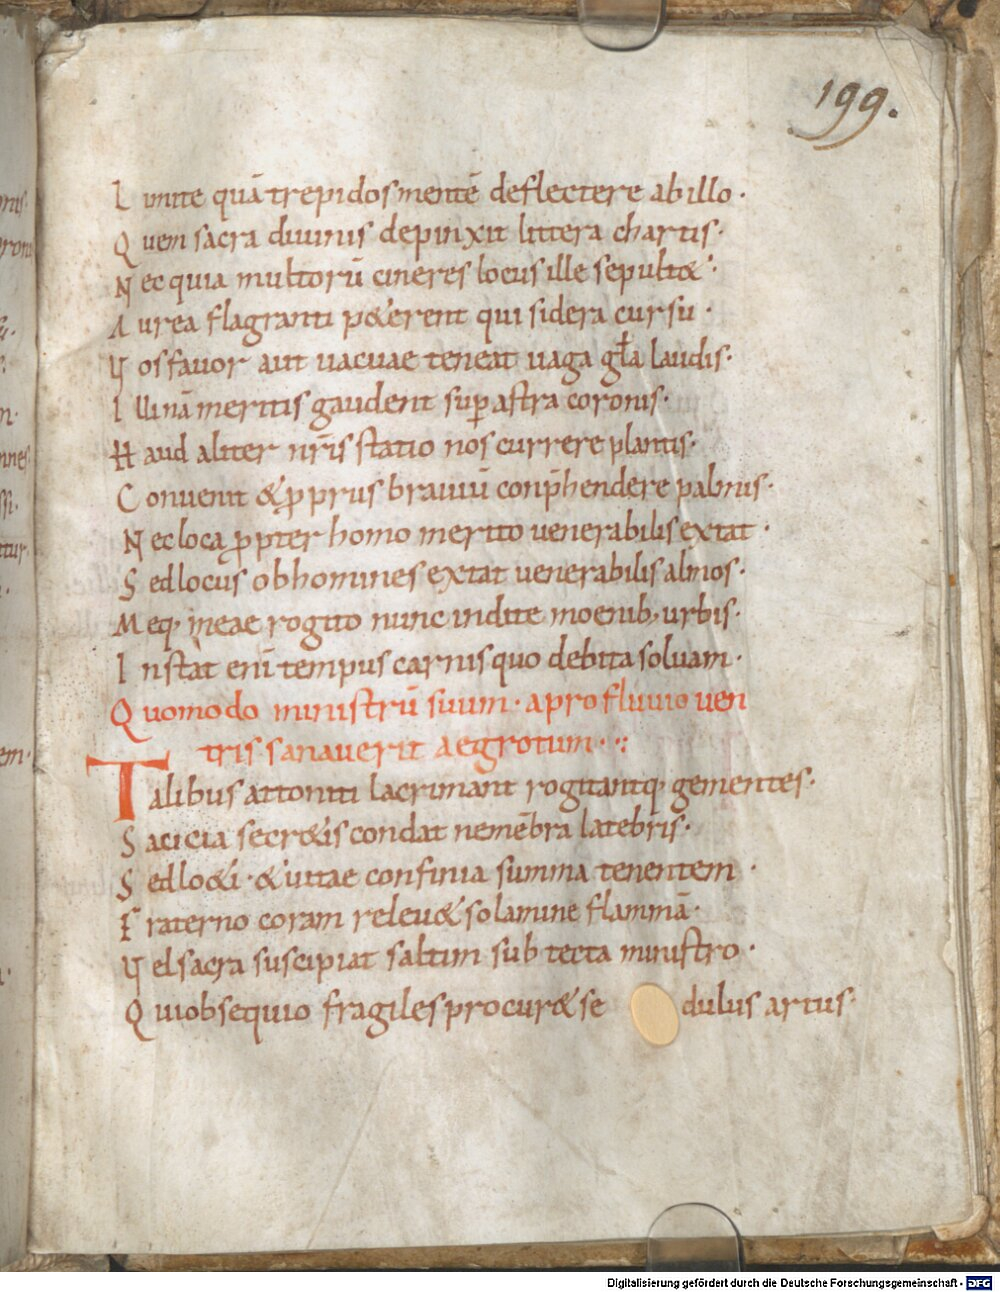 199.
L imite quā trepidos mentē deflectere ab illo ·
Q uem sacra diuinis depinxit littera chartis·
N ec quia multorū cineres locus ille sepult&·
A urea flagranti p&erent qui sidera cursu ·
V os fauor aut uacuae teneat uaga gła laudis·
I lli nā meritis gaudent sup astra coronis·
H aud aliter nr̄is statio nos currere plantis·
C onuenit & ꝓprius brauiū conp̄hendere palmis·
N ec loca ꝓpter homo merito uenerabilis extat ·
S ed locus ob homines extat uenerabilis almos·
M eq· meae rogito nunc indite moenib; urbis·
I nstat eni tempus carnis quo debita soluam·
Q uomodo ministrū suum · a profluuio uen
tris sanauerit aegrotum · :
Talibus attoniti lacrimant rogitantq· gementes·
S acicia secr&is condat ne mēbra latebris·
S ed lo&i · & uitae confinia summa tenentem ·
F raterno coram releu& solamine flammā·
V el sacra suscipiat saltim sub tecta ministro ·
Q ui obsequio fragiles procur& se dulus artus·
Digitalisierung gefördert durch die Deutsche Forschungsgemeinschaft - DFG